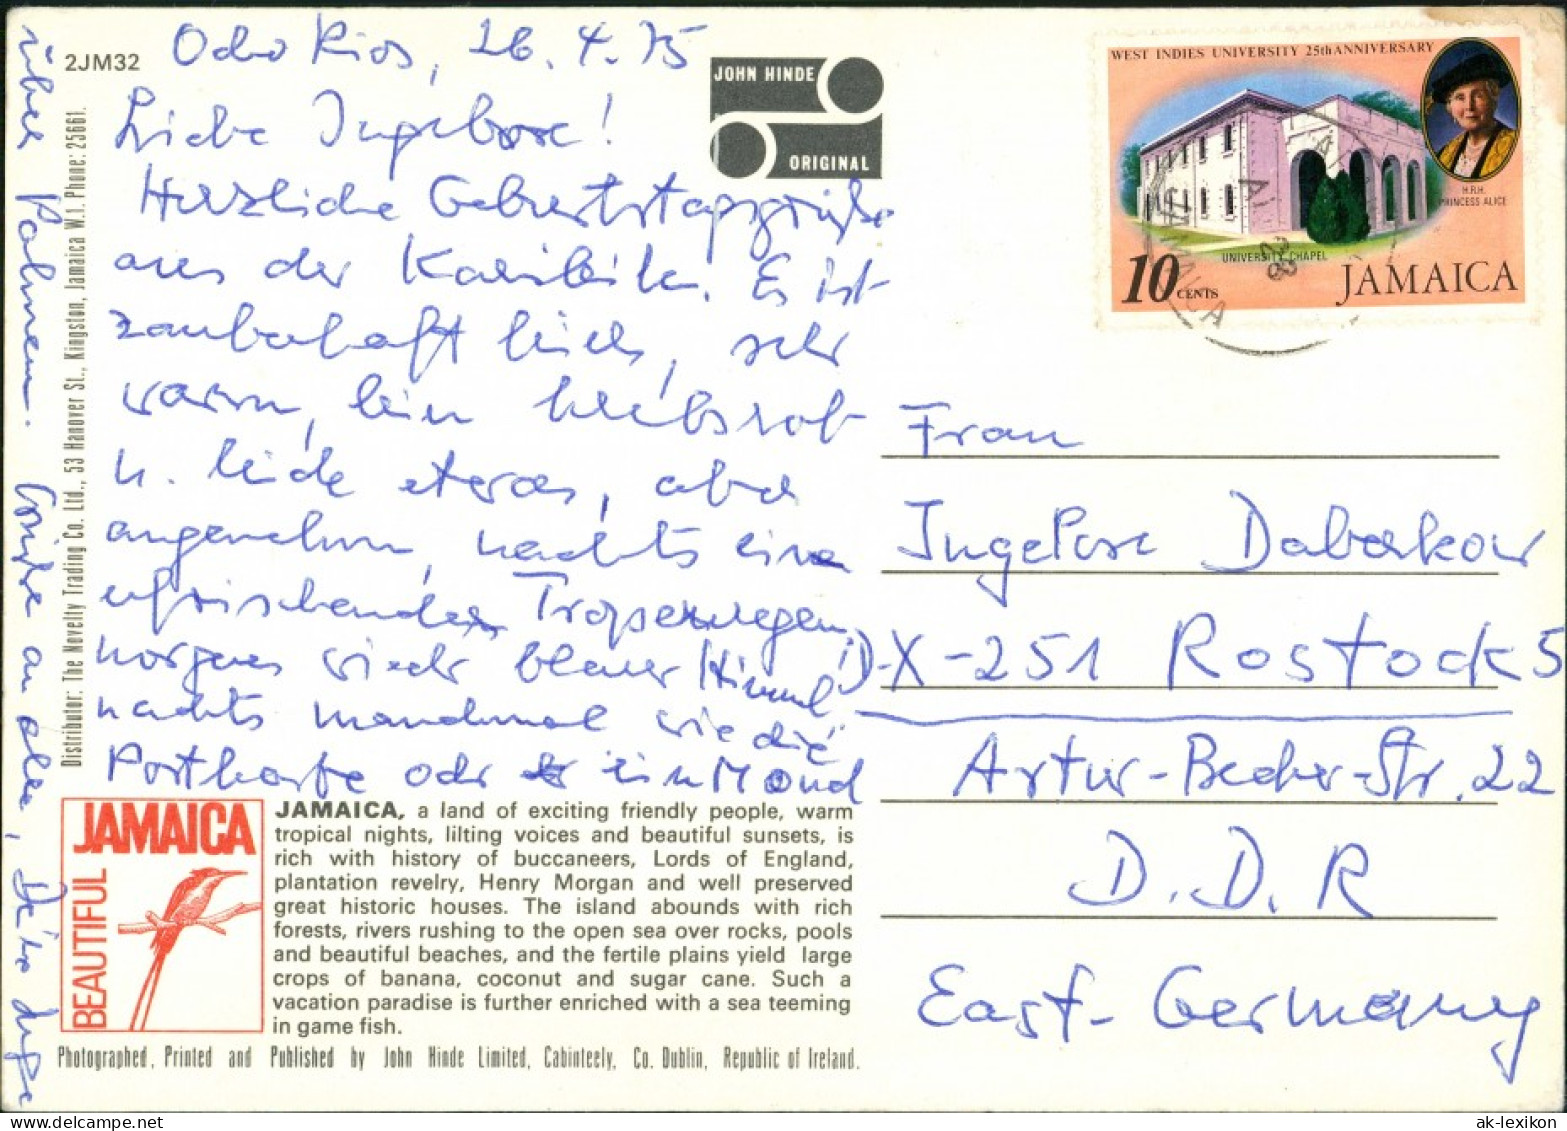 2JM32
Ocho Rios, 26.4.75
Liebe Ingeborg!
Herzliche Geburtstagsgrüße
aus der Karibik. Es ist
zauberhaft hier, sehr
warm, bin krebsrot
u. leide etwas, aber
angenehm, nachts ein
erfrischender Tropenregen,
morgens wieder blauer Himmel
nachts manchmal wie die
Postkarte oder ein Mond
über Palmen. Grüße an alle,
Distributor: The Novelty Trading Co. Ltd., 53 Hanover St., Kingston, Jamaica W.I. Phone: 25661.
JOHN HINDE
ORIGINAL
WEST INDIES UNIVERSITY 25th ANNIVERSARY
H.R.H.
PRINCESS ALICE
UNIVERSITY CHAPEL
10 CENTS
JAMAICA
JAMAICA
Frau
Ingeborg Dabarkow
D-X-251 Rostock 5
Artur-Becker-Str. 22
D.D.R
East-Germany
JAMAICA
BEAUTIFUL
JAMAICA, a land of exciting friendly people, warm
tropical nights, lilting voices and beautiful sunsets, is
rich with history of buccaneers, Lords of England,
plantation revelry, Henry Morgan and well preserved
great historic houses. The island abounds with rich
forests, rivers rushing to the open sea over rocks, pools
and beautiful beaches, and the fertile plains yield large
crops of banana, coconut and sugar cane. Such a
vacation paradise is further enriched with a sea teeming
in game fish.
Photographed, Printed and Published by John Hinde Limited, Cabinteely, Co. Dublin, Republic of Ireland.
ak-lexikon